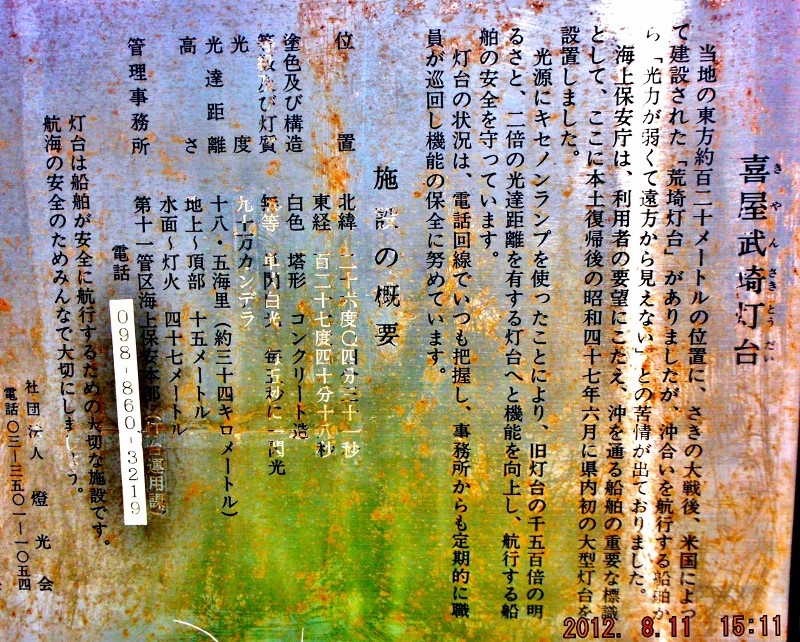 喜屋武埼灯台
きやんさきとうだい
当地の東方約百二十メートルの位置に、さきの大戦後、米国によっ
て建設された「荒埼灯台」がありましたが、沖合いを航行する船舶か
ら「光力が弱くて遠方から見えない」との苦情が出ておりました。
海上保安庁は、利用者の要望にこたえ、沖を通る船舶の重要な標識
として、ここに本土復帰後の昭和四十七年六月に県内初の大型灯台を
設置しました。
光源にキセノンランプを使ったことにより、旧灯台の千五百倍の明
るさと、二倍の光達距離を有する灯台へと機能を向上し、航行する船
舶の安全を守っています。
灯台の状況は、電話回線でいつも把握し、事務所からも定期的に職
員が巡回し機能の保全に努めています。
施設の概要
位置 北緯 二十六度〇四分三十一秒
東経 百二十七度四十分十八秒
塗色及び構造 白色 塔形 コンクリート造
等級及び灯質 無等 単閃白光 毎五秒に一閃光
光度 九十万カンデラ
光達距離 十八・五海里(約三十四キロメートル)
高さ 地上~頂部 十五メートル
水面~灯火 四十七メートル
管理事務所 第十一管区海上保安本部
電話 098-860-3219
灯台は船舶が安全に航行するための大切な施設です。
航海の安全のためみんなで大切にしましょう。
社団法人 燈光会
電話〇三-三五〇一-一〇五四
2012. 8.11 15:11